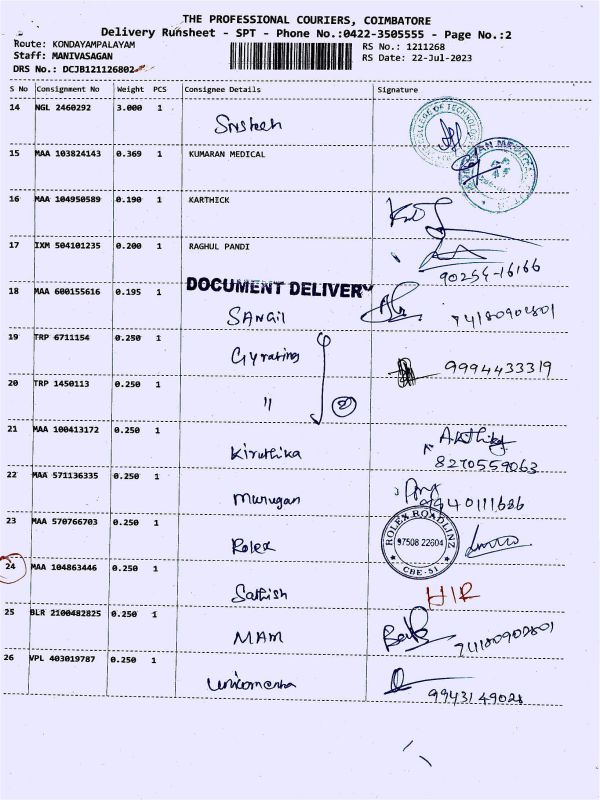 THE PROFESSIONAL COURIERS, COIMBATORE
Delivery Runsheet - SPT - Phone No.:0422-3505555 - Page No.:2
Route: KONDAYAMPALAYAM RS No.: 1211268
Staff: MANIVASAGAN RS Date: 22-Jul-2023
DRS No.: DCJB121126802
S No Consignment No Weight PCS Consignee Details Signature
14 NGL 2460292 3.000 1
COLLEGE OF TECHNOLOGY
15 MAA 103824143 0.369 1 KUMARAN MEDICAL
16 MAA 104950589 0.190 1 KARTHICK
17 IXM 504101235 0.200 1 RAGHUL PANDI
90254-16166
DOCUMENT DELIVERY
18 MAA 600155616 0.195 1 SANGIL
74180902801
19 TRP 6711154 0.250 1 Gyrating 9994433319
20 TRP 1450113 0.250 1 " 2
21 MAA 100413172 0.250 1 Kiruthika
8270559063
22 MAA 571136335 0.250 1 Murugan
9940111686
23 MAA 570766703 0.250 1 Rolex
ROLEX ROADLINZ
97508 22604
CBE-51
24 MAA 104863446 0.250 1 Sathish H/R
25 BLR 2100482825 0.250 1 MAM
74180902801
26 VPL 403019787 0.250 1
9943149028